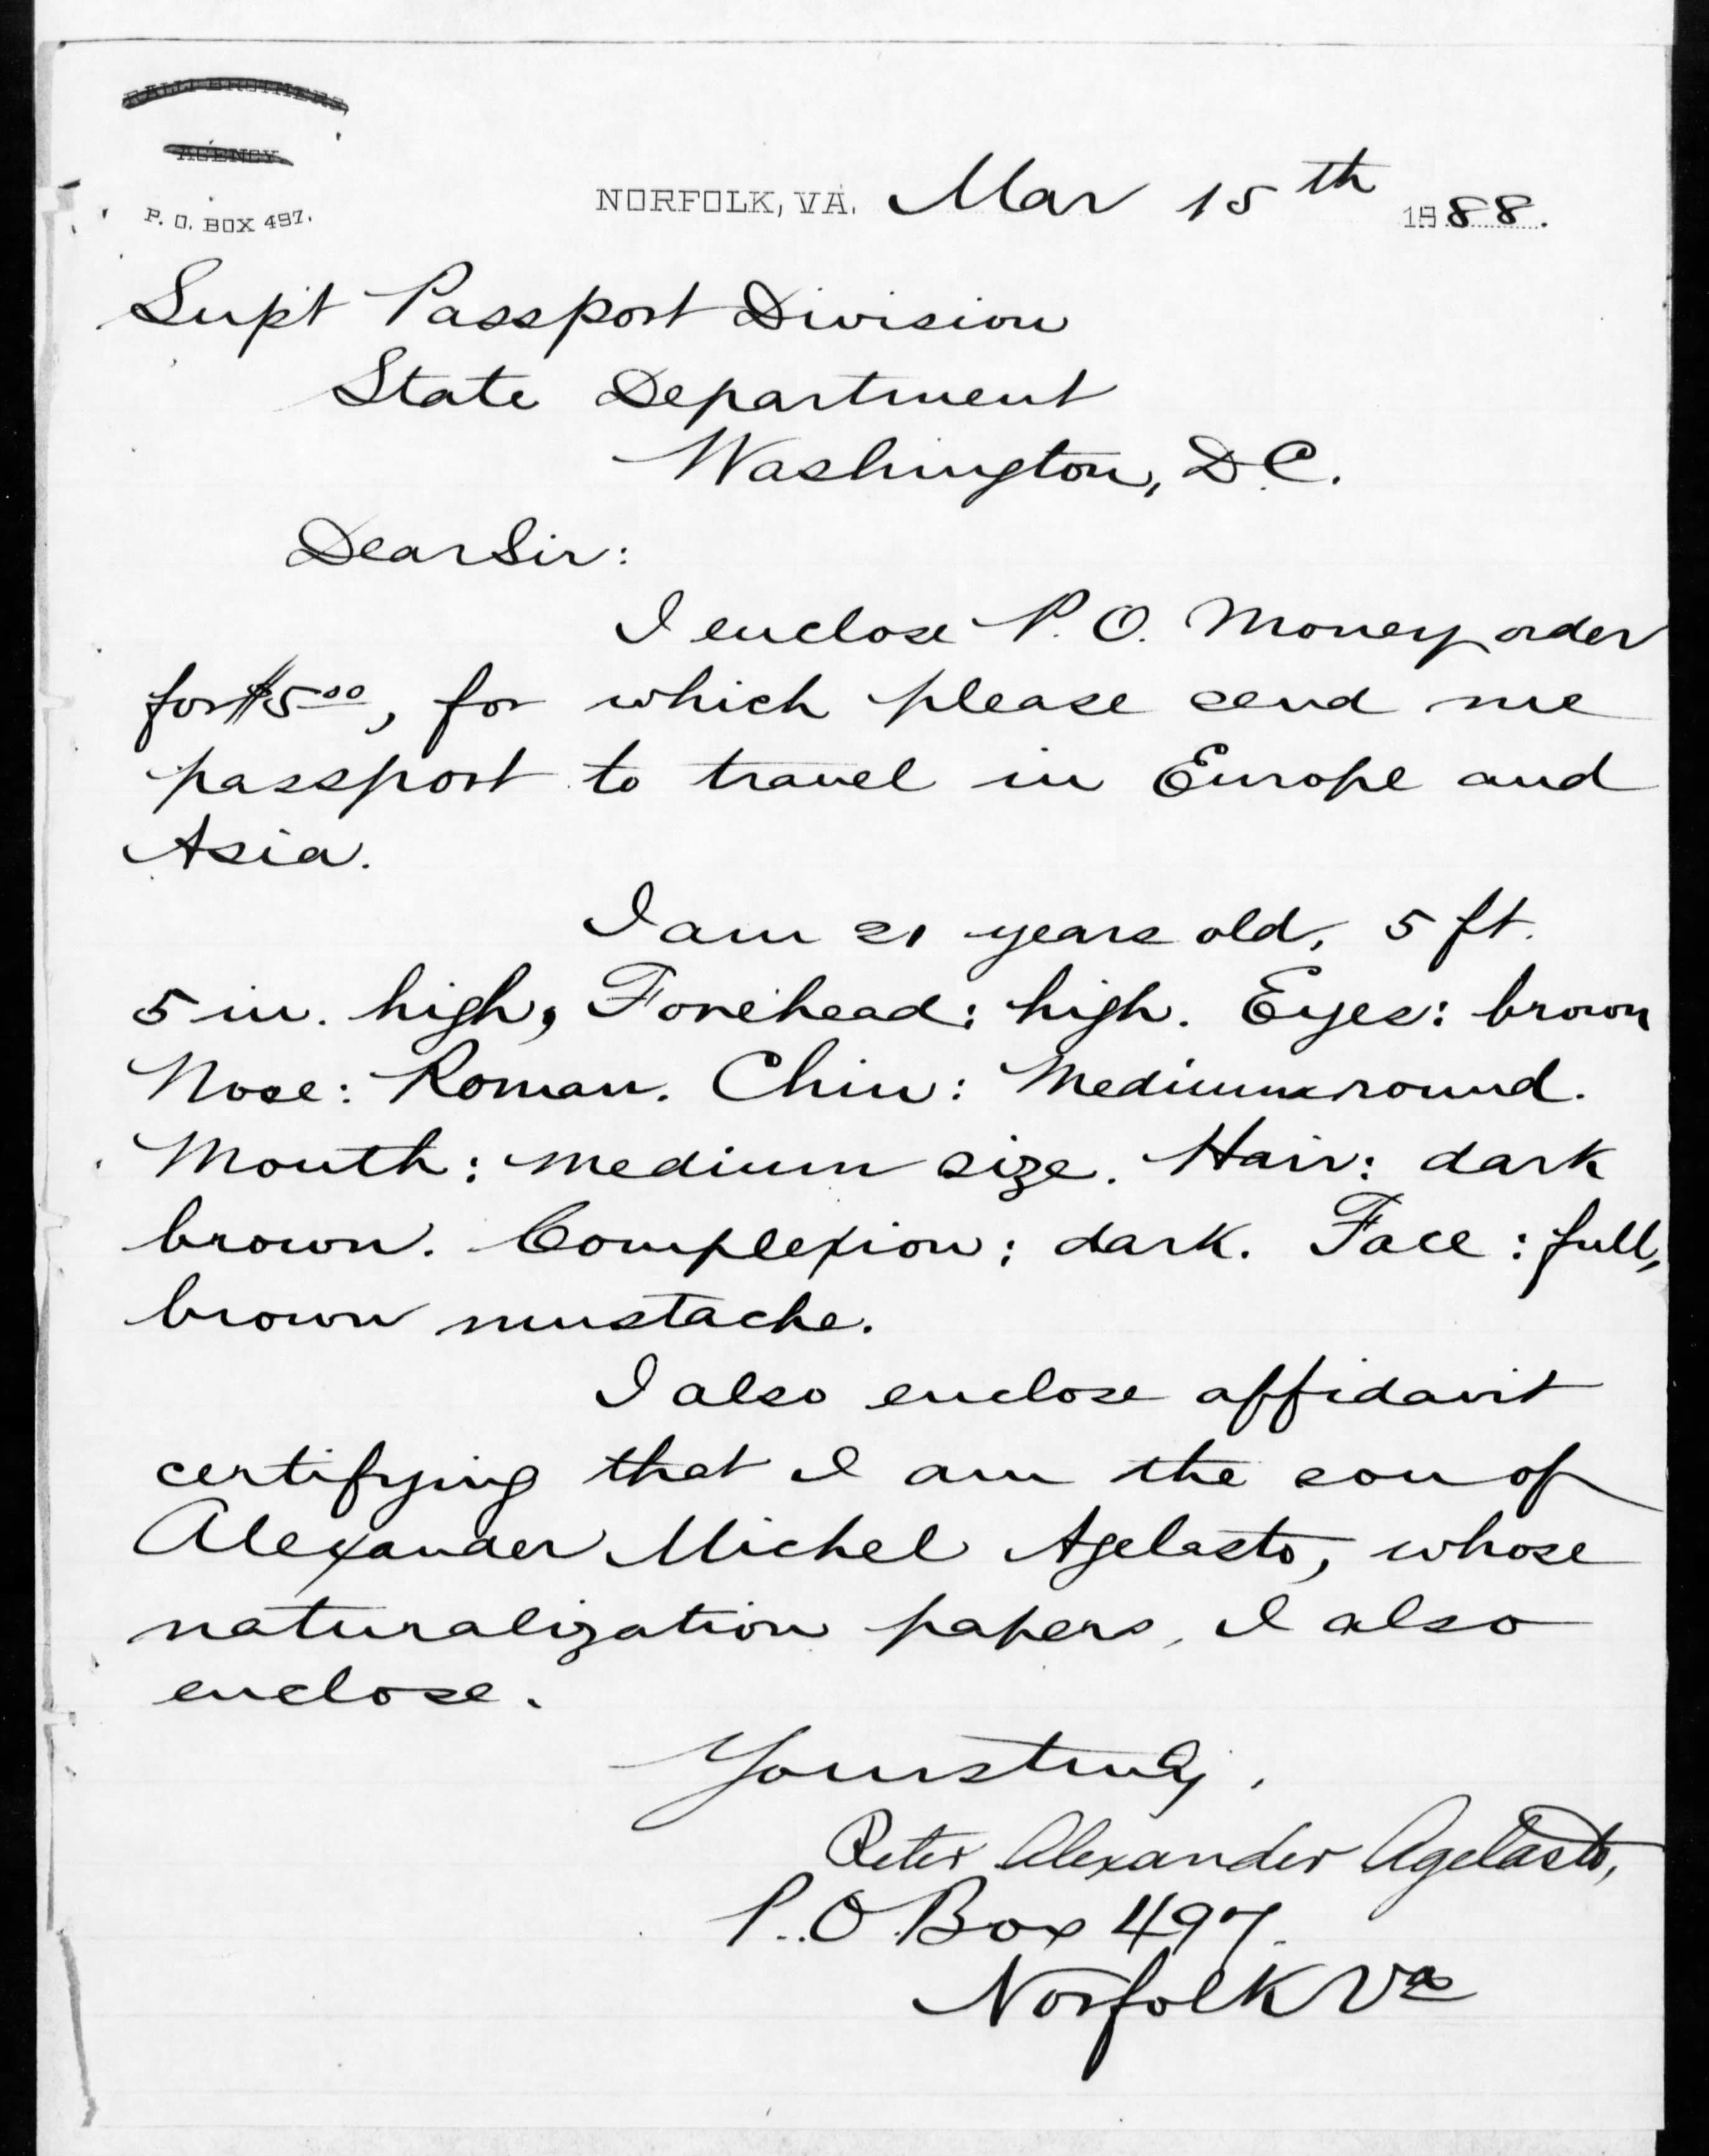 RALLI BROTHERS,
AGENCY.
P. O. BOX 497.
NORFOLK, VA. Mar 15th 1888.
Supt Passport Division
State Department
Washington, D.C.
Dear Sir:
I enclose P. O. Money order
for $5.00, for which please send me
passport to travel in Europe and
Asia.
I am 21 years old, 5 ft.
5 in. high, Forehead: high. Eyes: brown
Nose: Roman. Chin: Medium round.
Mouth: medium size. Hair: dark
brown. Complexion: dark. Face: full,
brown mustache.
I also enclose affidavit
certifying that I am the son of
Alexander Michel Agelasto, whose
naturalization papers, I also
enclose.
Yours truly,
Peter Alexander Agelasto,
P.O. Box 497.
Norfolk Va